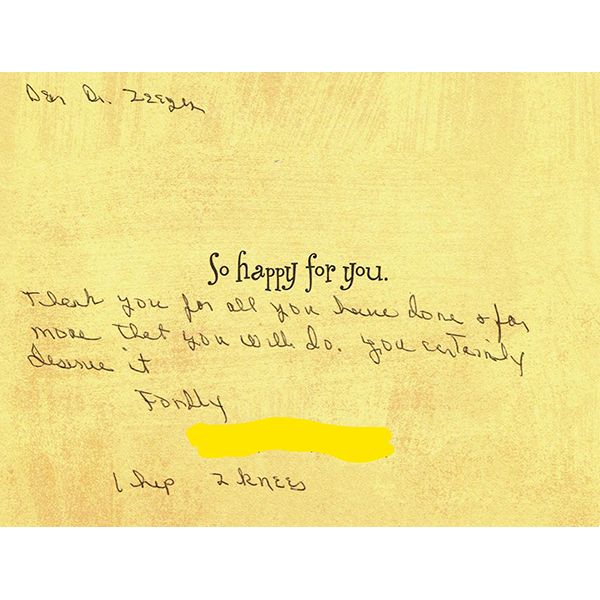 Dear Dr. Zeegen
So happy for you.
Thank you for all you have done & for
more that you will do. You certainly
deserve it
Fondly
1 hip 2 knees